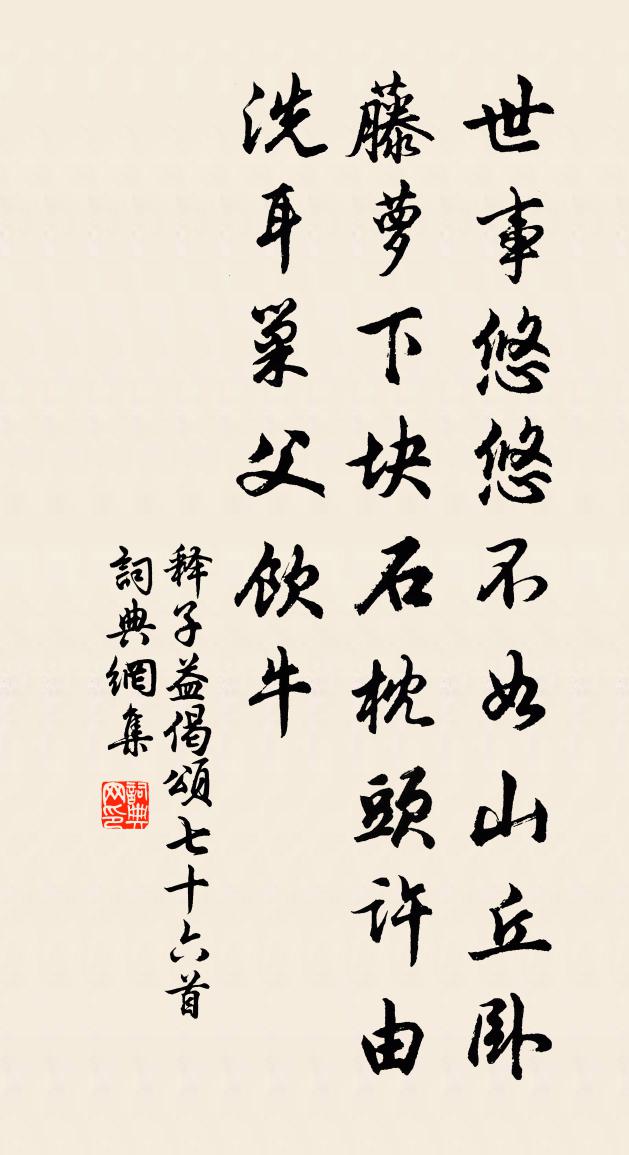 世事悠悠不如山丘卧
藤萝下块石枕頭许由
洗耳巢父饮牛
释子益偈頌七十六首
詞典網集
詞典网印